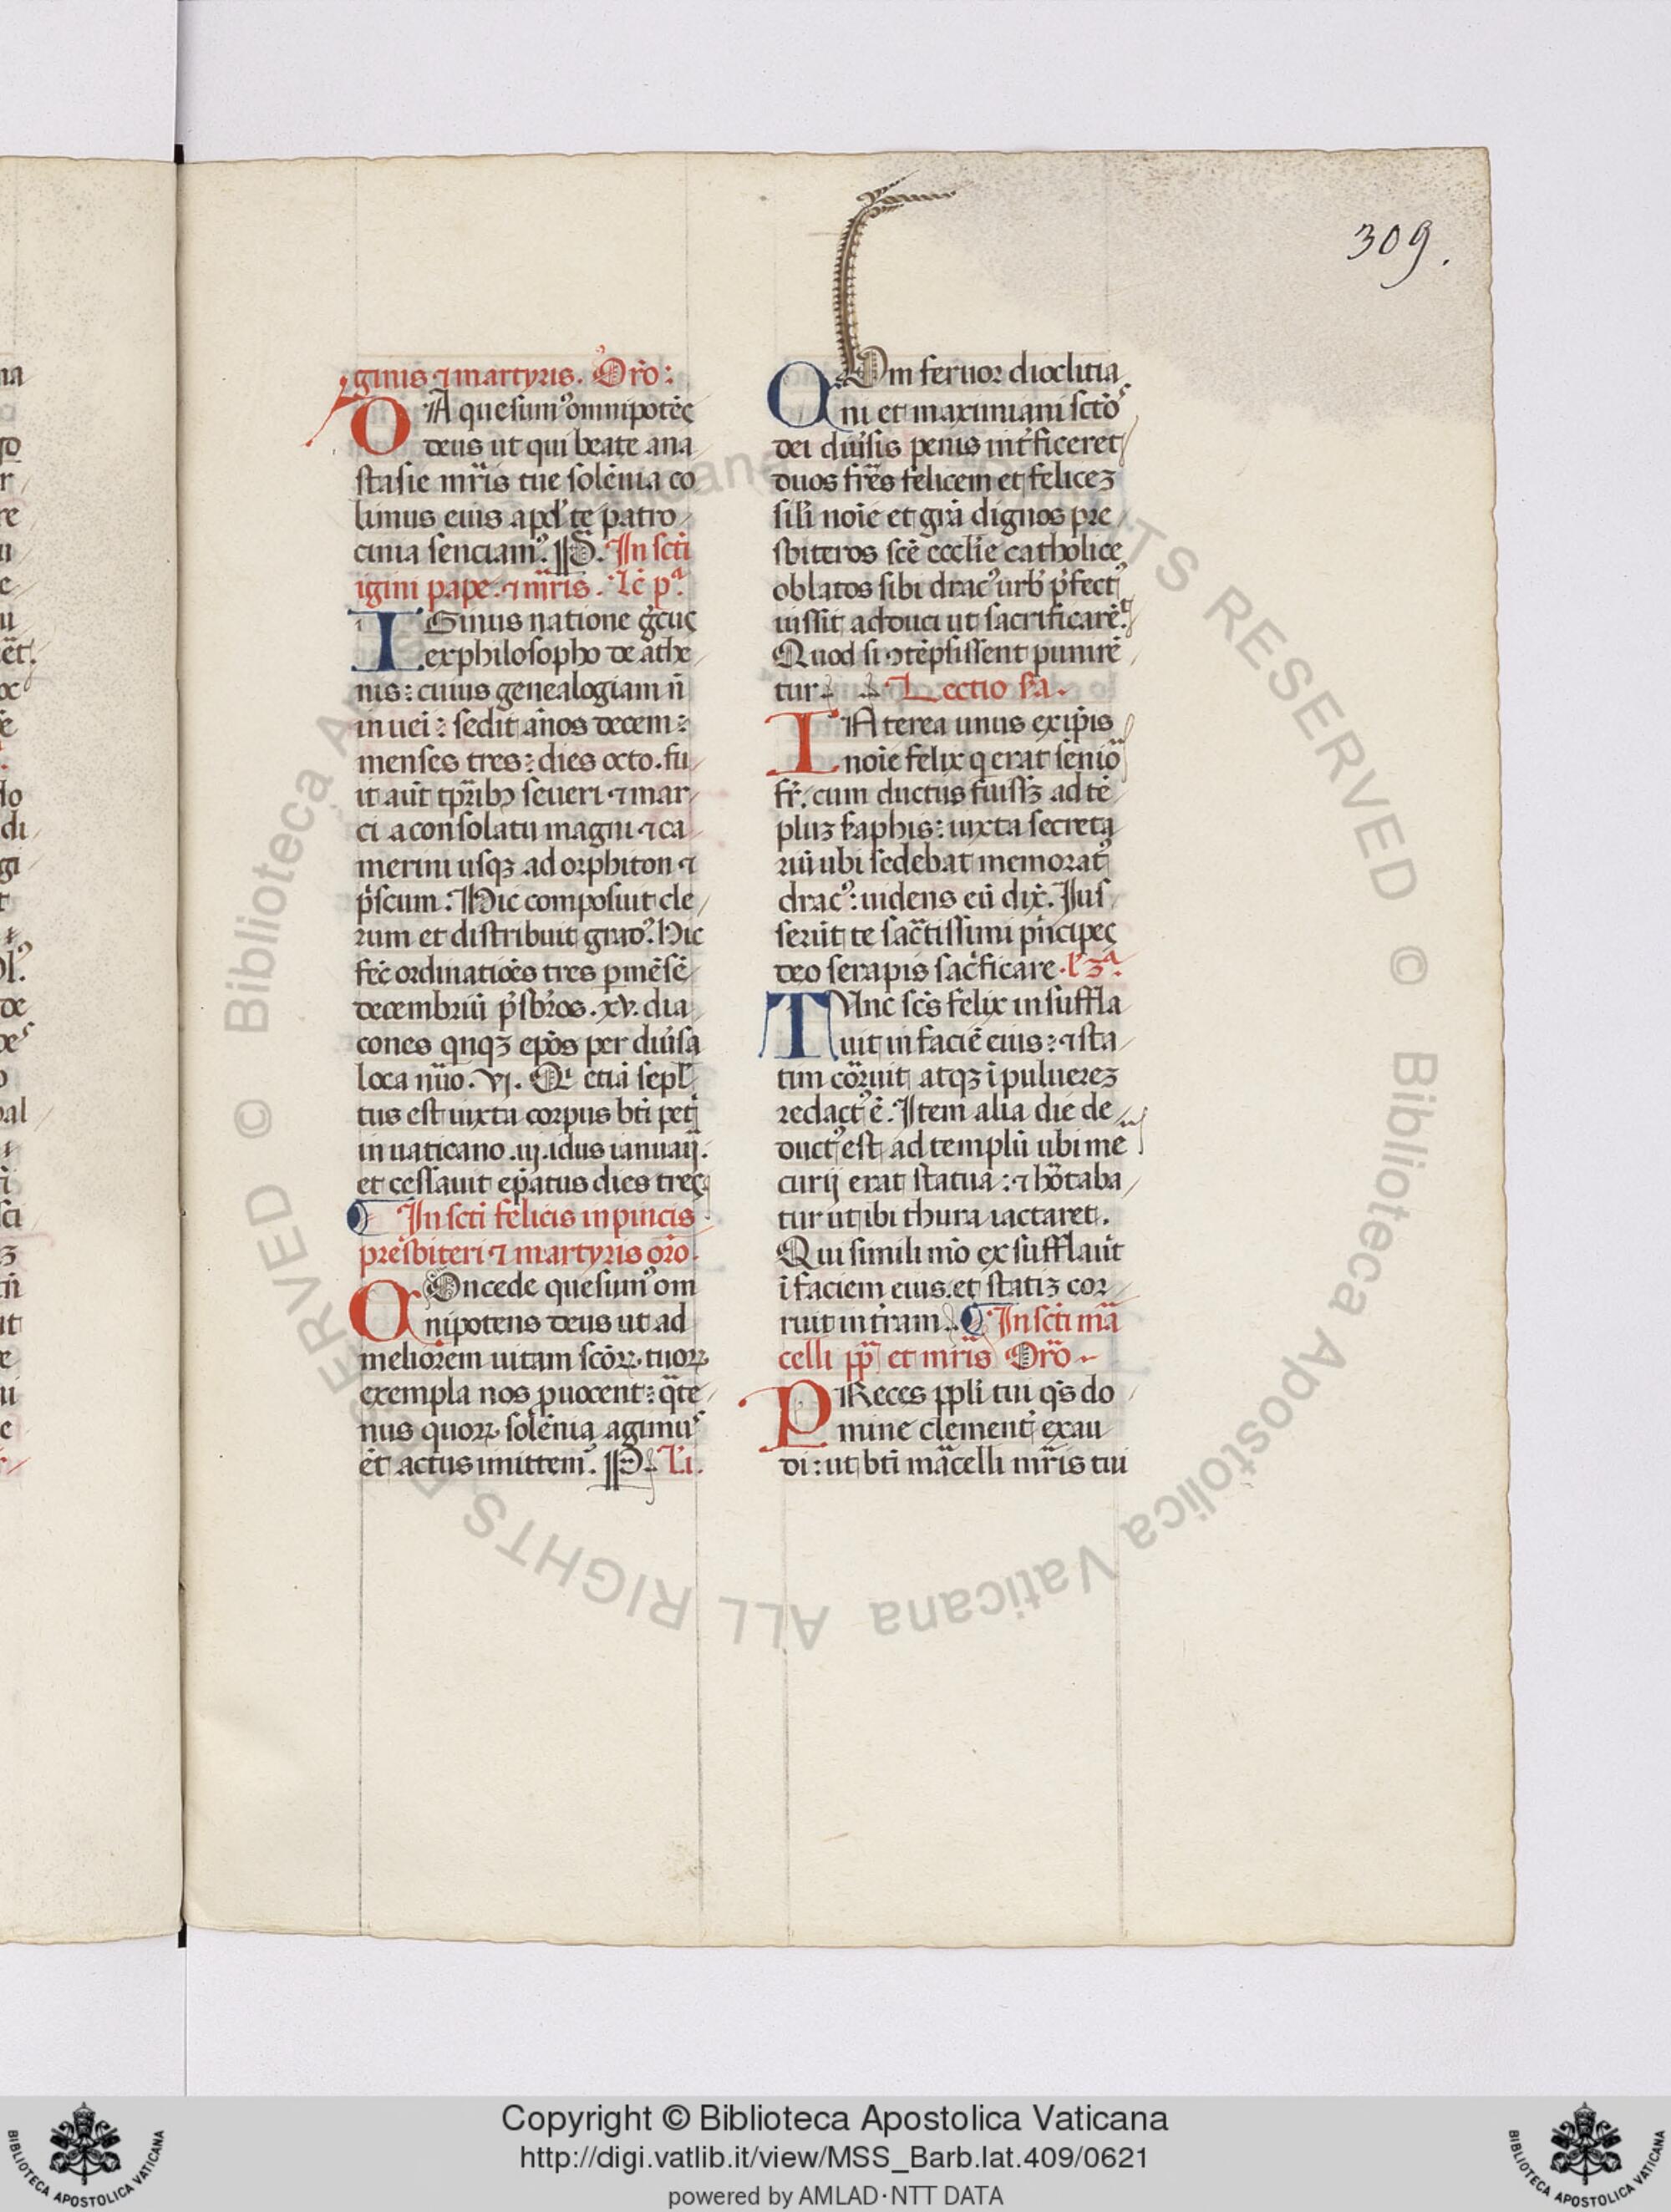 309.
ginis ⁊ martyris. Oro᷑:
DA quesumꝰ omnipotēs
deus ut qui beate ana
stasie mr̄is tue solēnia co
limus eius apd' te patro
cinia senciamꝰ. P. In scti
igini pape ⁊ mr̄is. Lc̄ pª.
IGinus natione grecus
ex philosopho de athe
nis: cuius genealogiam n̄
inueī: sedit ānos decem:
menses tres: dies octo. fu
it aut̄ tp̄ribꝫ seueri ⁊ mar
ci a consolatu magni ⁊ ca
merini usqꝫ ad orphiton ⁊
p̄scum: Hic composuit cle
rum et distribuit gradꝰ. Hic
fec̄ ordinatiōes tres p mēsē
decembriū p̄sbr̄os. xv. dia
cones qnqꝫ ep̄os per diuīsa
loca nūo. vj. Qi etiā sepl'
tus est iuxta corpus bt̄i petᷓ
in uaticano .iij. idus ianuarij.
et cessauit ep̄atus dies tres.
In scti felicis in pincis
presbiteri ⁊ martyris oro᷑.
COncede quesumꝰ om
nipotens deus ut ad
meliorem uitam scōꝝ tuoꝝ
exempla nos ꝓuocent: q̄te
nus quoꝝ solēnia agimus
et actus imittemꝰ. P. L'i.
CUm feruor dioclitia
ni et maximiani sctōs
dei diuīsis penis int̄ficeret
duos fr̄es felicem et feliceꝫ
sil'i noīe et gr̄a dignos pre
sbiteros scē eccl'ie catholice
oblatos sibi dracꝰ urb' p̄fectꝰ
iussit adduci ut sacrificarēt.
Quod si ↄtēpsissent punirē
tur. Lectio sᷓa.
INterea unus ex ip̄is
noīe felix q erat senior
fr̄. cum ductus fuissꝫ ad tē
pluꝫ s̄aphis: iuxta secreta
riū ubi sedebat memoratꝰ
dracꝰ: uidens eū dix̄. Jus
serūt te sac̄tissimi prīcipes
deo serapis sac̄ficare. l' 3ª.
TUnc scs̄ felix insuffla
uit in faciē eius: ⁊ sta
tim corruit atqꝫ ī puluereꝫ
redactꝰ ē. Item alia die de
ductꝰ est ad templū ubi me
curij erat statua: ⁊ hōtaba
tur ut ibi thura iactaret.
Qui simili mō exsufflauit
ī faciem eius. et statiꝫ cor
ruit in tᷓram. In scti maᷓ
celli pp̄ et mr̄is Oro᷑
PReces pp̄li tui qs̄ do
mine clementꝰ exau
di: ut bt̄i maᷓcelli mr̄is tui
Copyright © Biblioteca Apostolica Vaticana
http://digi.vatlib.it/view/MSS_Barb.lat.409/0621
powered by AMLAD·NTT DATA